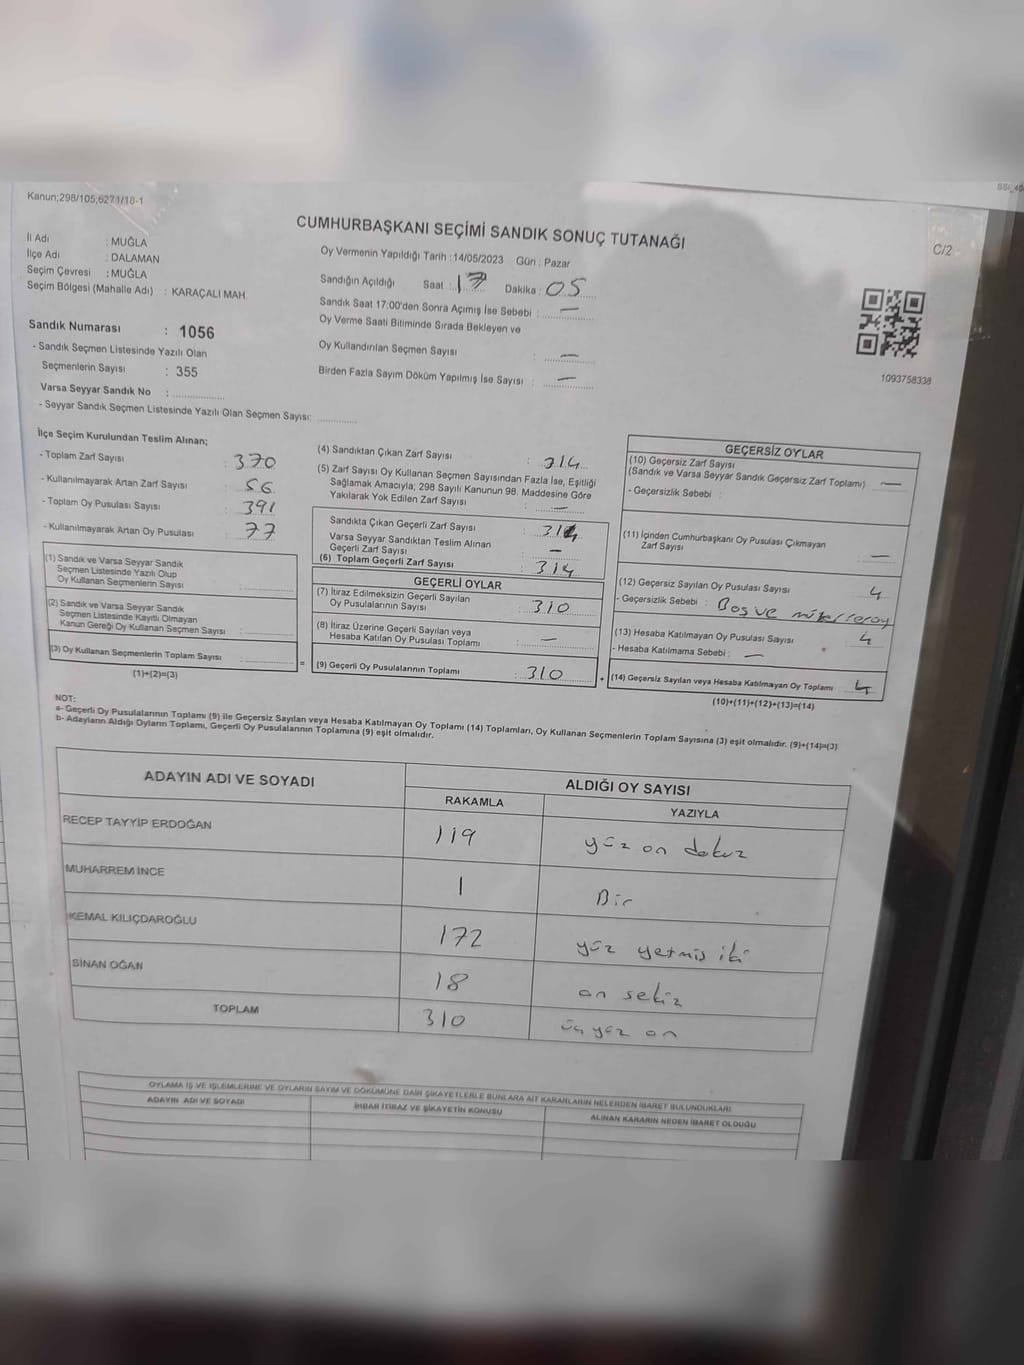 Kanun;298/105;6271/18-1
C/2
CUMHURBAŞKANI SEÇİMİ SANDIK SONUÇ TUTANAĞI
İl Adı : MUĞLA
İlçe Adı : DALAMAN
Seçim Çevresi : MUĞLA
Seçim Bölgesi (Mahalle Adı) : KARAÇALI MAH.
Sandık Numarası : 1056
- Sandık Seçmen Listesinde Yazılı Olan
Seçmenlerin Sayısı : 355
Varsa Seyyar Sandık No :
- Seyyar Sandık Seçmen Listesinde Yazılı Olan Seçmen Sayısı:
Oy Vermenin Yapıldığı Tarih :14/05/2023 Gün : Pazar
Sandığın Açıldığı Saat : 17 Dakika : 05
Sandık Saat 17:00'den Sonra Açımış İse Sebebi : —
Oy Verme Saati Bitiminde Sırada Bekleyen ve
Oy Kullandırılan Seçmen Sayısı : —
Birden Fazla Sayım Döküm Yapılmış İse Sayısı : —
1093758338
İlçe Seçim Kurulundan Teslim Alınan;
- Toplam Zarf Sayısı : 370
- Kullanılmayarak Artan Zarf Sayısı : 56
- Toplam Oy Pusulası Sayısı : 391
- Kullanılmayarak Artan Oy Pusulası : 77
(1) Sandık ve Varsa Seyyar Sandık
Seçmen Listesinde Yazılı Olup
Oy Kullanan Seçmenlerin Sayısı :
(2) Sandık ve Varsa Seyyar Sandık
Seçmen Listesinde Kayıtlı Olmayan
Kanun Gereği Oy Kullanan Seçmen Sayısı :
(3) Oy Kullanan Seçmenlerin Toplam Sayısı :
(1)+(2)=(3)
(4) Sandıktan Çıkan Zarf Sayısı : 314
(5) Zarf Sayısı Oy Kullanan Seçmen Sayısından Fazla İse, Eşitliği
Sağlamak Amacıyla; 298 Sayılı Kanunun 98. Maddesine Göre
Yakılarak Yok Edilen Zarf Sayısı : —
Sandıkta Çıkan Geçerli Zarf Sayısı : 314
Varsa Seyyar Sandıktan Teslim Alınan
Geçerli Zarf Sayısı : —
(6) Toplam Geçerli Zarf Sayısı : 314
GEÇERLİ OYLAR
(7) İtiraz Edilmeksizin Geçerli Sayılan
Oy Pusulalarının Sayısı : 310
(8) İtiraz Üzerine Geçerli Sayılan veya
Hesaba Katılan Oy Pusulası Toplamı : —
(9) Geçerli Oy Pusulalarının Toplamı : 310
GEÇERSİZ OYLAR
(10) Geçersiz Zarf Sayısı
(Sandık ve Varsa Seyyar Sandık Geçersiz Zarf Toplamı) : —
- Geçersizlik Sebebi :
(11) İçinden Cumhurbaşkanı Oy Pusulası Çıkmayan
Zarf Sayısı : —
(12) Geçersiz Sayılan Oy Pusulası Sayısı : 4
- Geçersizlik Sebebi : Boş ve
(13) Hesaba Katılmayan Oy Pusulası Sayısı : 4
- Hesaba Katılmama Sebebi : —
(14) Geçersiz Sayılan veya Hesaba Katılmayan Oy Toplamı : 4
(10)+(11)+(12)+(13)=(14)
NOT:
a- Geçerli Oy Pusulalarının Toplamı (9) ile Geçersiz Sayılan veya Hesaba Katılmayan Oy Toplamı (14) Toplamları, Oy Kullanan Seçmenlerin Toplam Sayısına (3) eşit olmalıdır. (9)+(14)=(3)
b- Adayların Aldığı Oyların Toplamı, Geçerli Oy Pusulalarının Toplamına (9) eşit olmalıdır.
ADAYIN ADI VE SOYADI
ALDIĞI OY SAYISI
RAKAMLA YAZIYLA
RECEP TAYYİP ERDOĞAN 119 yüz on dokuz
MUHARREM İNCE 1 Bir
KEMAL KILIÇDAROĞLU 172 yüz yetmiş iki
SİNAN OĞAN 18 on sekiz
TOPLAM 310 üç yüz on
OYLAMA İŞ VE İŞLEMLERİNE VE OYLARIN SAYIM VE DÖKÜMÜNE DAİR ŞİKAYETLERLE BUNLARA AİT KARARLARIN NELERDEN İBARET BULUNDUKLARI
ADAYIN ADI VE SOYADI İHBAR İTİRAZ VE ŞİKAYETİN KONUSU ALINAN KARARIN NEDEN İBARET OLDUĞU